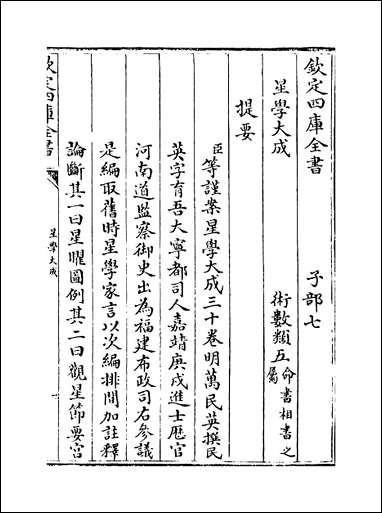 欽定四庫全書
子部七
星學大成
術數類五
命書相書之
屬
提要
臣等謹案星學大成三十卷明萬民英撰民
英字育吾大寧都司人嘉靖庚戌進士歷官
河南道監察御史出為福建布政司右參議
是編取舊時星學家言以次編排間加註釋
論斷其一曰星曜圖例其二曰觀星節要宮
欽定四庫全書
星學大成
一